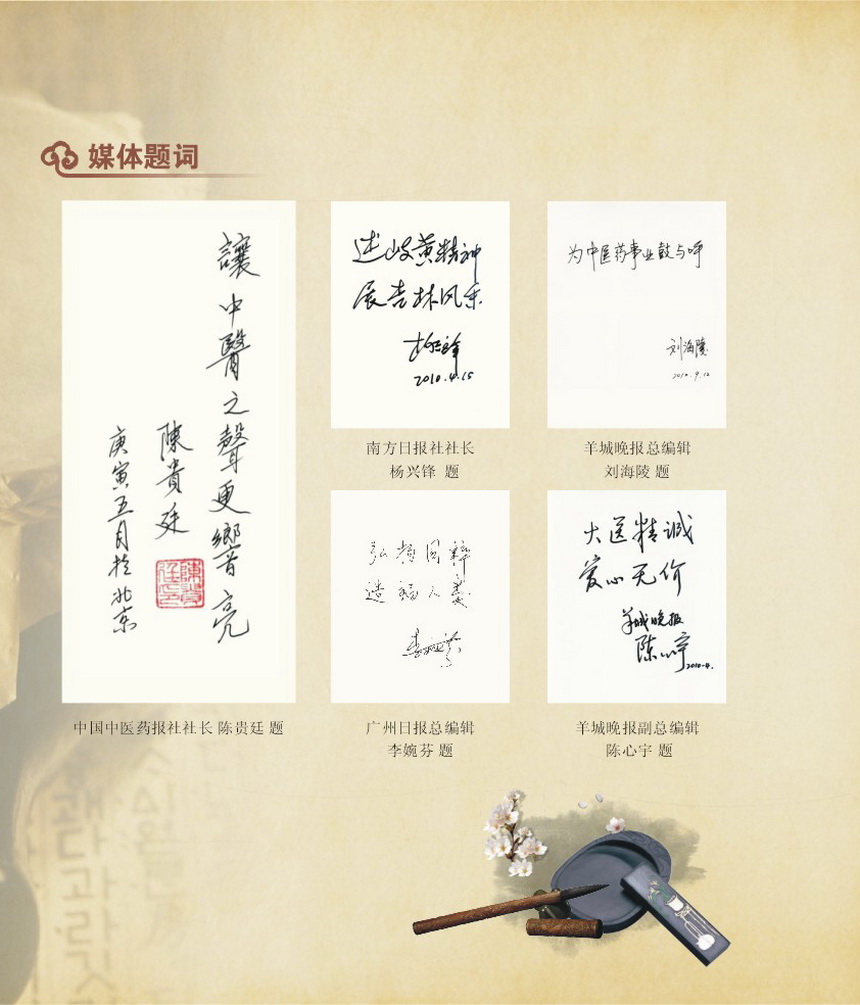 媒体题词
讓中醫之聲更響亮
陳貴廷
庚寅五月於北京
中国中医药报社社长 陈贵廷 题
述岐黄精神
展杏林风采
2010.4.15
南方日报社社长
杨兴锋 题
为中医药事业鼓与呼
刘海陵
2010.9.12
羊城晚报总编辑
刘海陵 题
弘扬国粹
造福人类
广州日报总编辑
李婉芬 题
大医精诚
爱心无价
羊城晚报
陈心宇
2010.4.
羊城晚报副总编辑
陈心宇 题